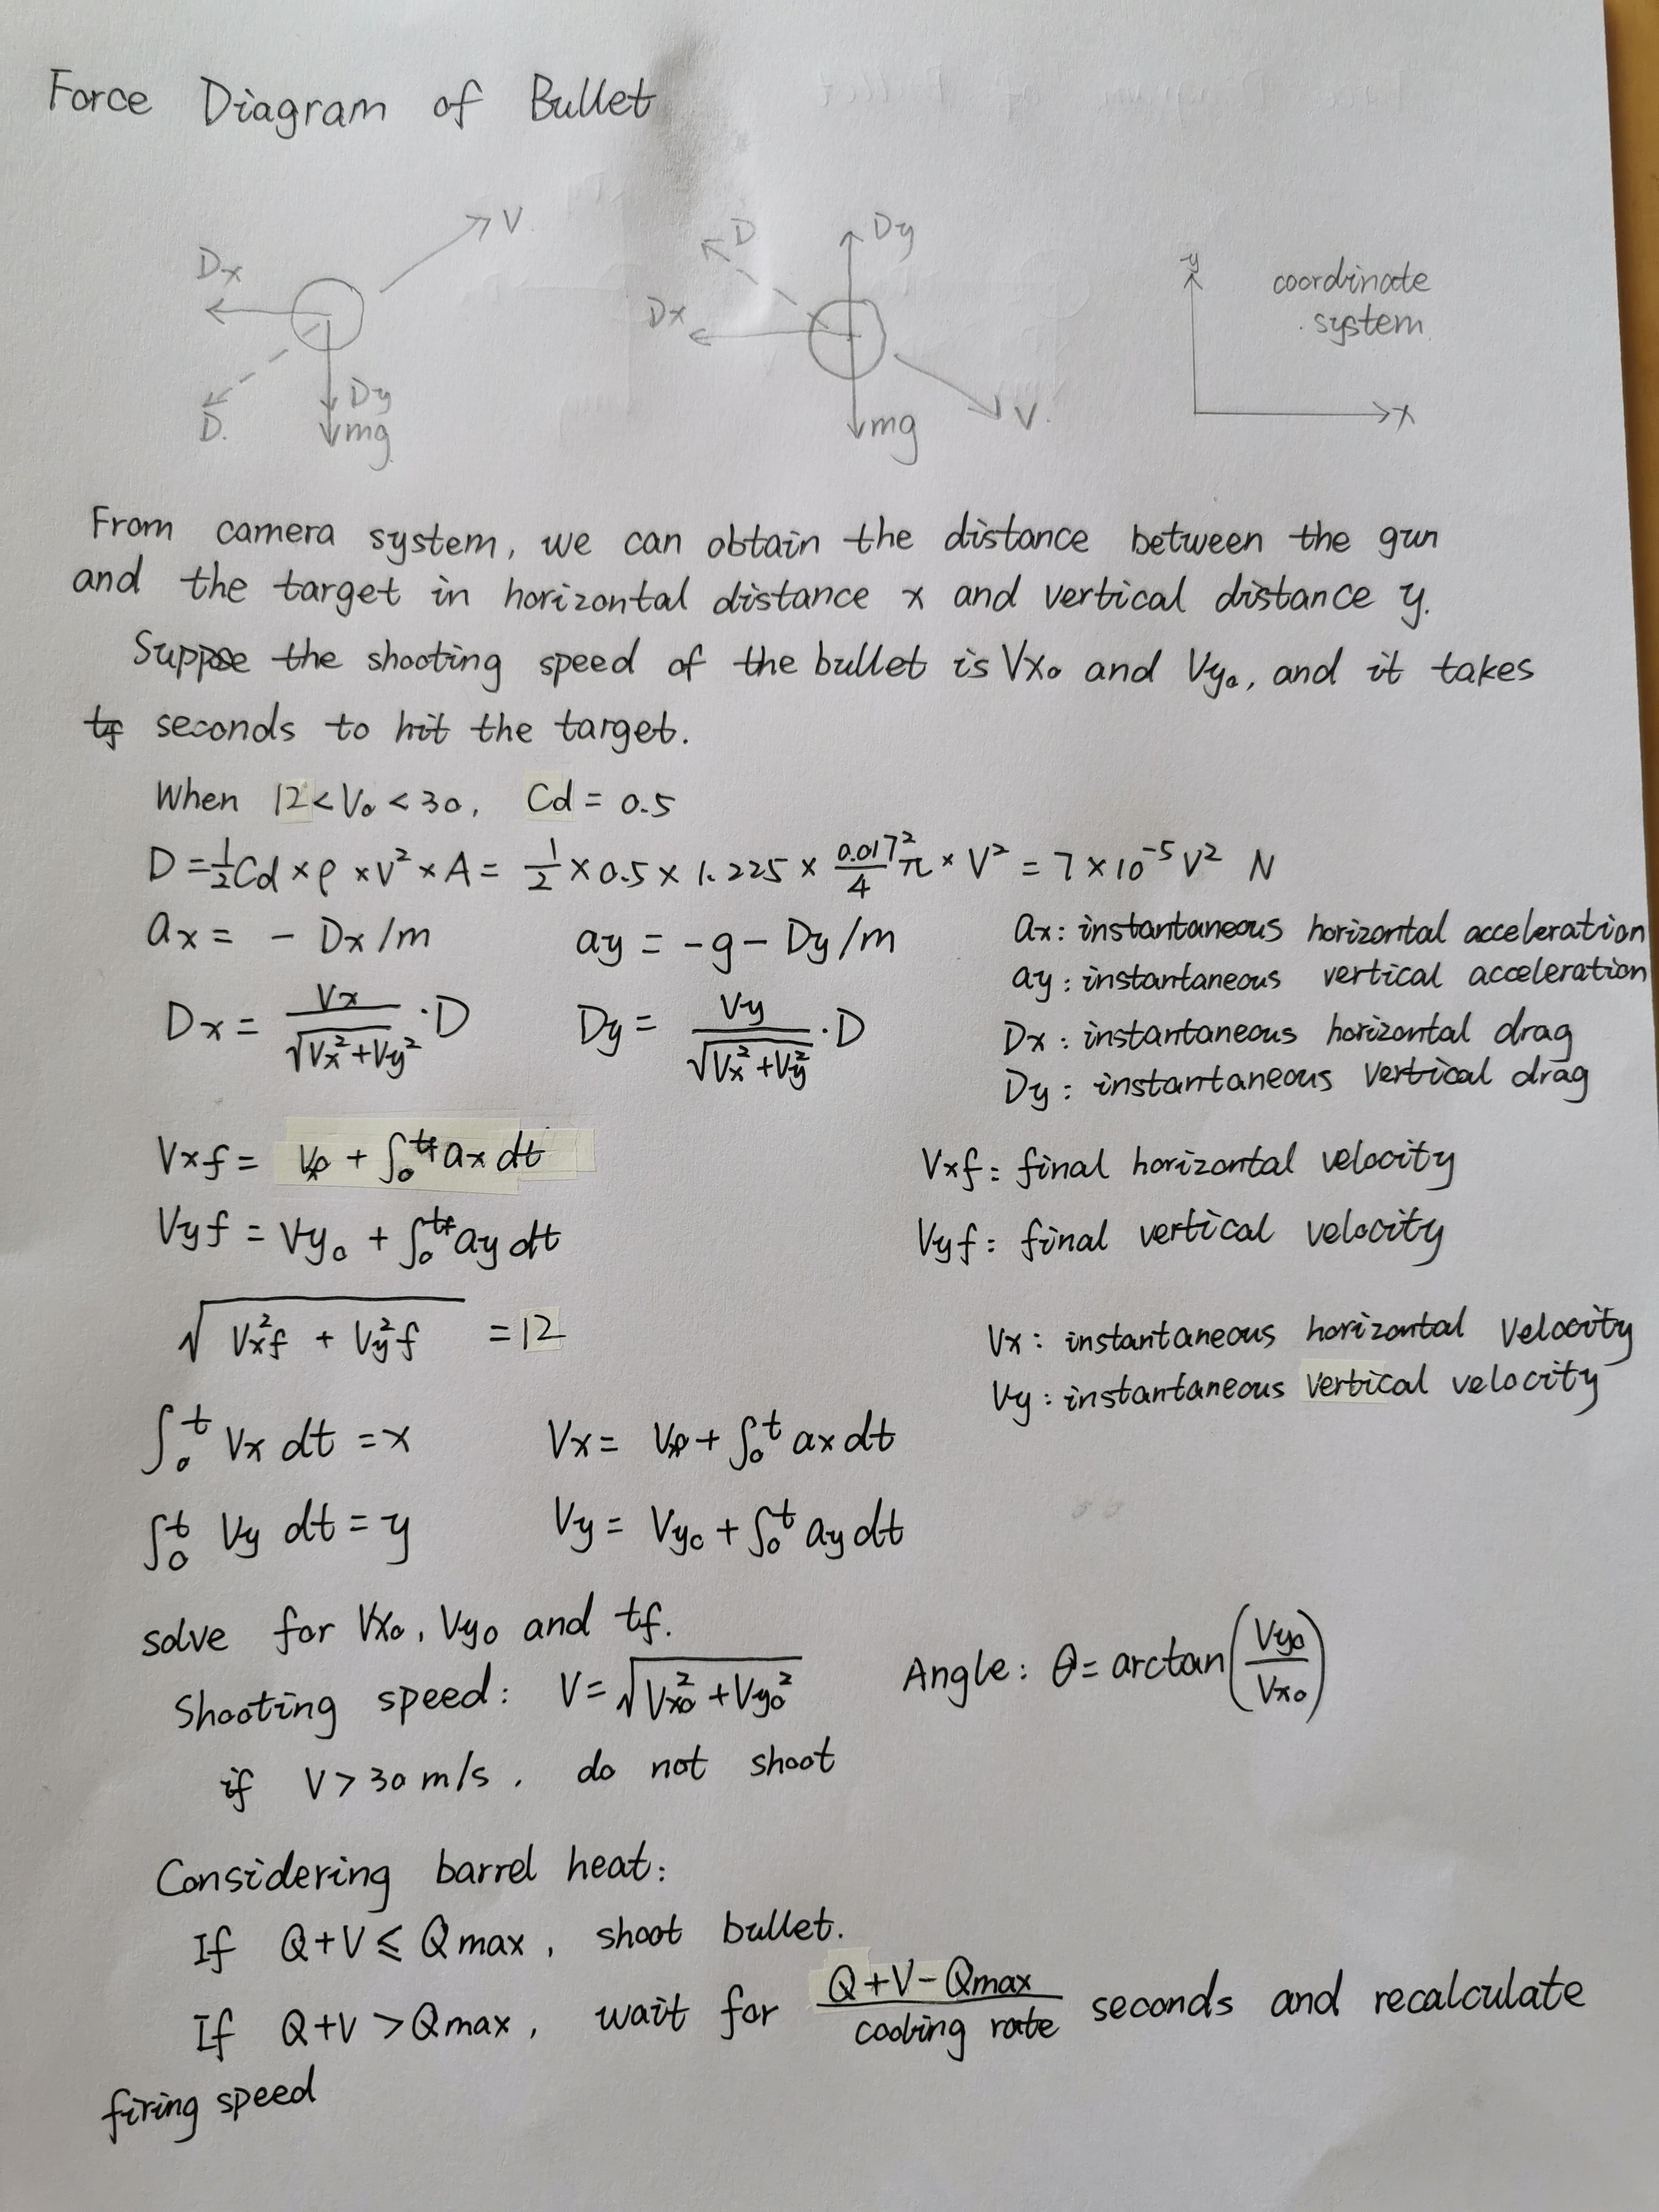 Force Diagram of Bullet
V
Dx
D
Dy
mg
D
Dy
Dx
mg
V
y
x
coordinate
system
From camera system, we can obtain the distance between the gun
and the target in horizontal distance x and vertical distance y.
Suppose the shooting speed of the bullet is Vx₀ and Vy₀, and it takes
tf seconds to hit the target.
When 12<V₀<30, Cd = 0.5
D = ½Cd × ρ × V² × A = ½ × 0.5 × 1.225 × 0.017²/4 π × V² = 7×10⁻⁵ V² N
ax = - Dx/m ay = -g - Dy/m ax: instantaneous horizontal acceleration
ay: instantaneous vertical acceleration
Dx = Vx/√(Vx²+Vy²) · D Dy = Vy/√(Vx²+Vy²) · D Dx: instantaneous horizontal drag
Dy: instantaneous vertical drag
Vxf = Vx₀ + ∫₀^tf ax dt Vxf: final horizontal velocity
Vyf = Vy₀ + ∫₀^tf ay dt Vyf: final vertical velocity
√(Vx²f + Vy²f) = 12 Vx: instantaneous horizontal velocity
Vy: instantaneous vertical velocity
∫₀^t Vx dt = x Vx = Vx₀ + ∫₀^t ax dt
∫₀^t Vy dt = y Vy = Vy₀ + ∫₀^t ay dt
solve for Vx₀, Vy₀ and tf.
Shooting speed: V = √(Vx₀² + Vy₀²) Angle: θ = arctan(Vy₀/Vx₀)
if V > 30 m/s, do not shoot
Considering barrel heat:
If Q+V ≤ Qmax, shoot bullet.
If Q+V > Qmax, wait for (Q+V-Qmax)/cooling rate seconds and recalculate
firing speed